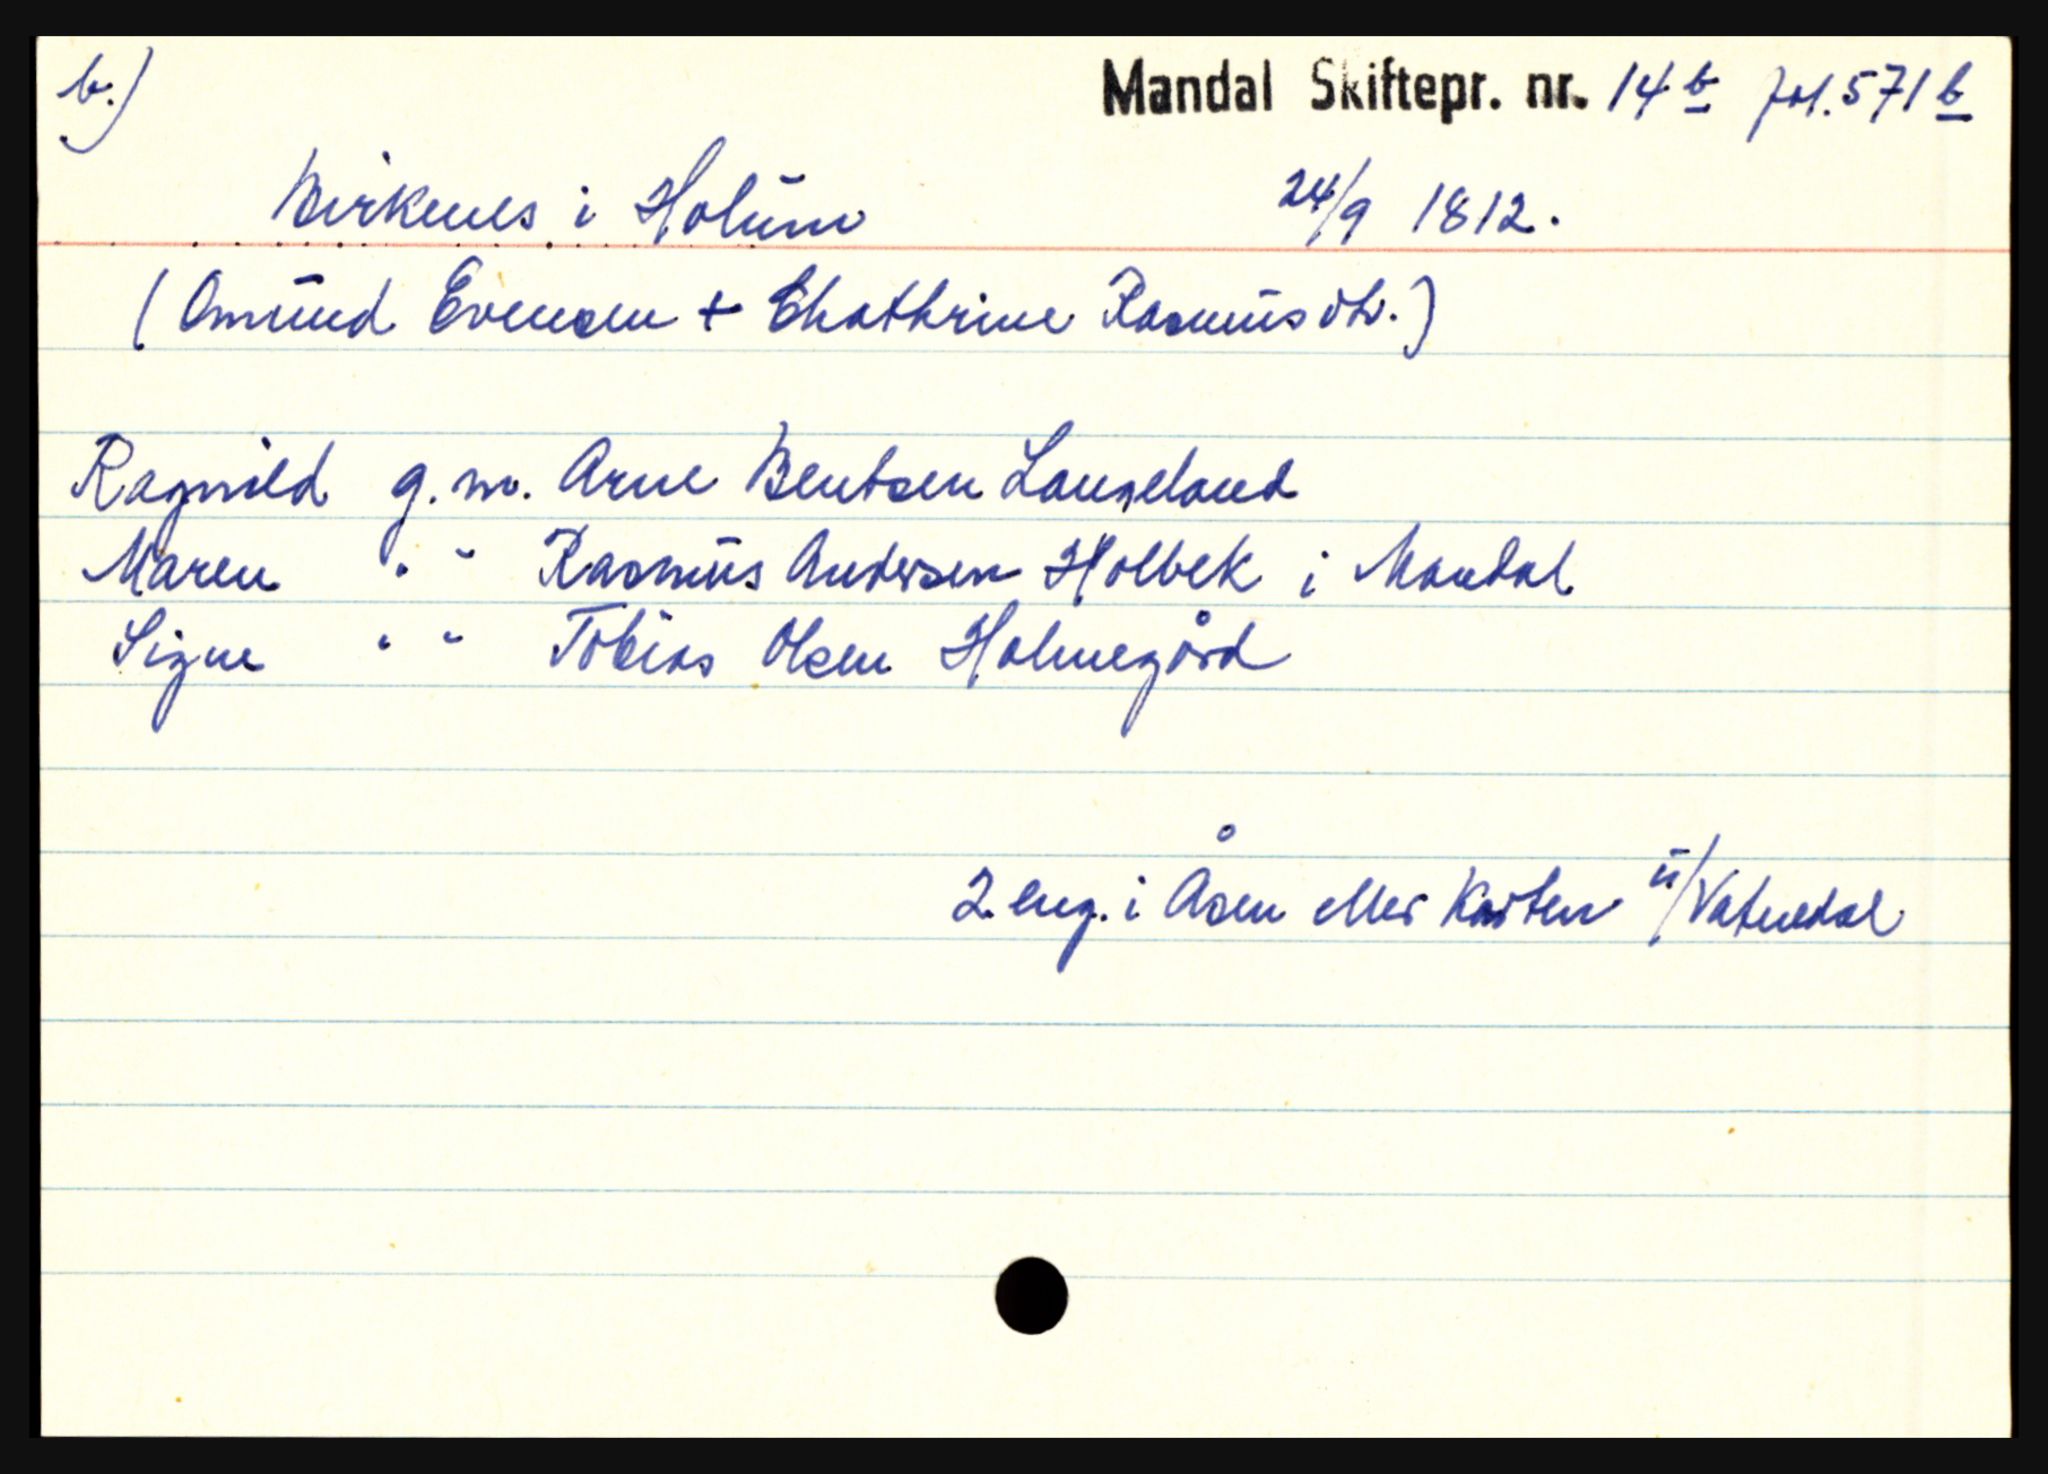 b.) Mandal Skiftepr. nr. 14 b fol. 571 b
Birkenes i Holum 24/9 1812.
(Omund Evensen + Chathrine Rasmusdtr.)
Ragnild g.m. Arne Bentsen Langeland
Maren " " Rasmus Andersen Holbek i Mandal
Signe " " Tobias Olsen Holmegård
2 eng. i Åsen eller Kosten u/Vatnedal